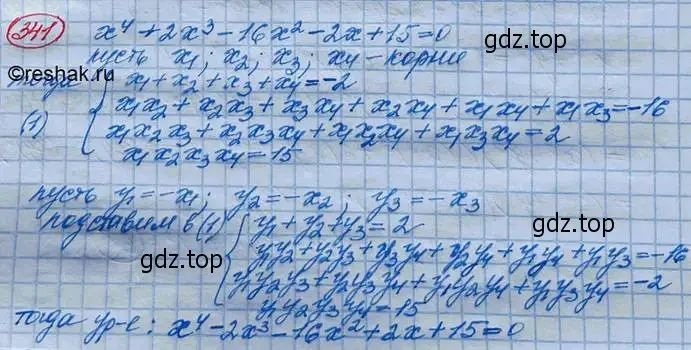 341 x⁴ + 2x³ - 16x² - 2x + 15 = 0
пусть x₁; x₂; x₃; x₄ - корни
©reshak.ru
тогда x₁ + x₂ + x₃ + x₄ = -2
x₁x₂ + x₂x₃ + x₃x₄ + x₂x₄ + x₁x₄ + x₁x₃ = -16
(1) x₁x₂x₃ + x₂x₃x₄ + x₁x₂x₄ + x₁x₃x₄ = 2
x₁x₂x₃x₄ = 15
gdz.top gdz.top
пусть y₁ = -x₁; y₂ = -x₂; y₃ = -x₃
подставим в (1) y₁ + y₂ + y₃ = 2
y₁y₂ + y₂y₃ + y₃y₄ + y₂y₄ + y₁y₄ + y₁y₃ = -16
gdz.top gdz.top
y₁y₂y₃ + y₂y₃y₄ + y₁y₂y₄ + y₁y₃y₄ = -2
y₁y₂y₃y₄ = 15
тогда ур-е: x⁴ - 2x³ - 16x² + 2x + 15 = 0